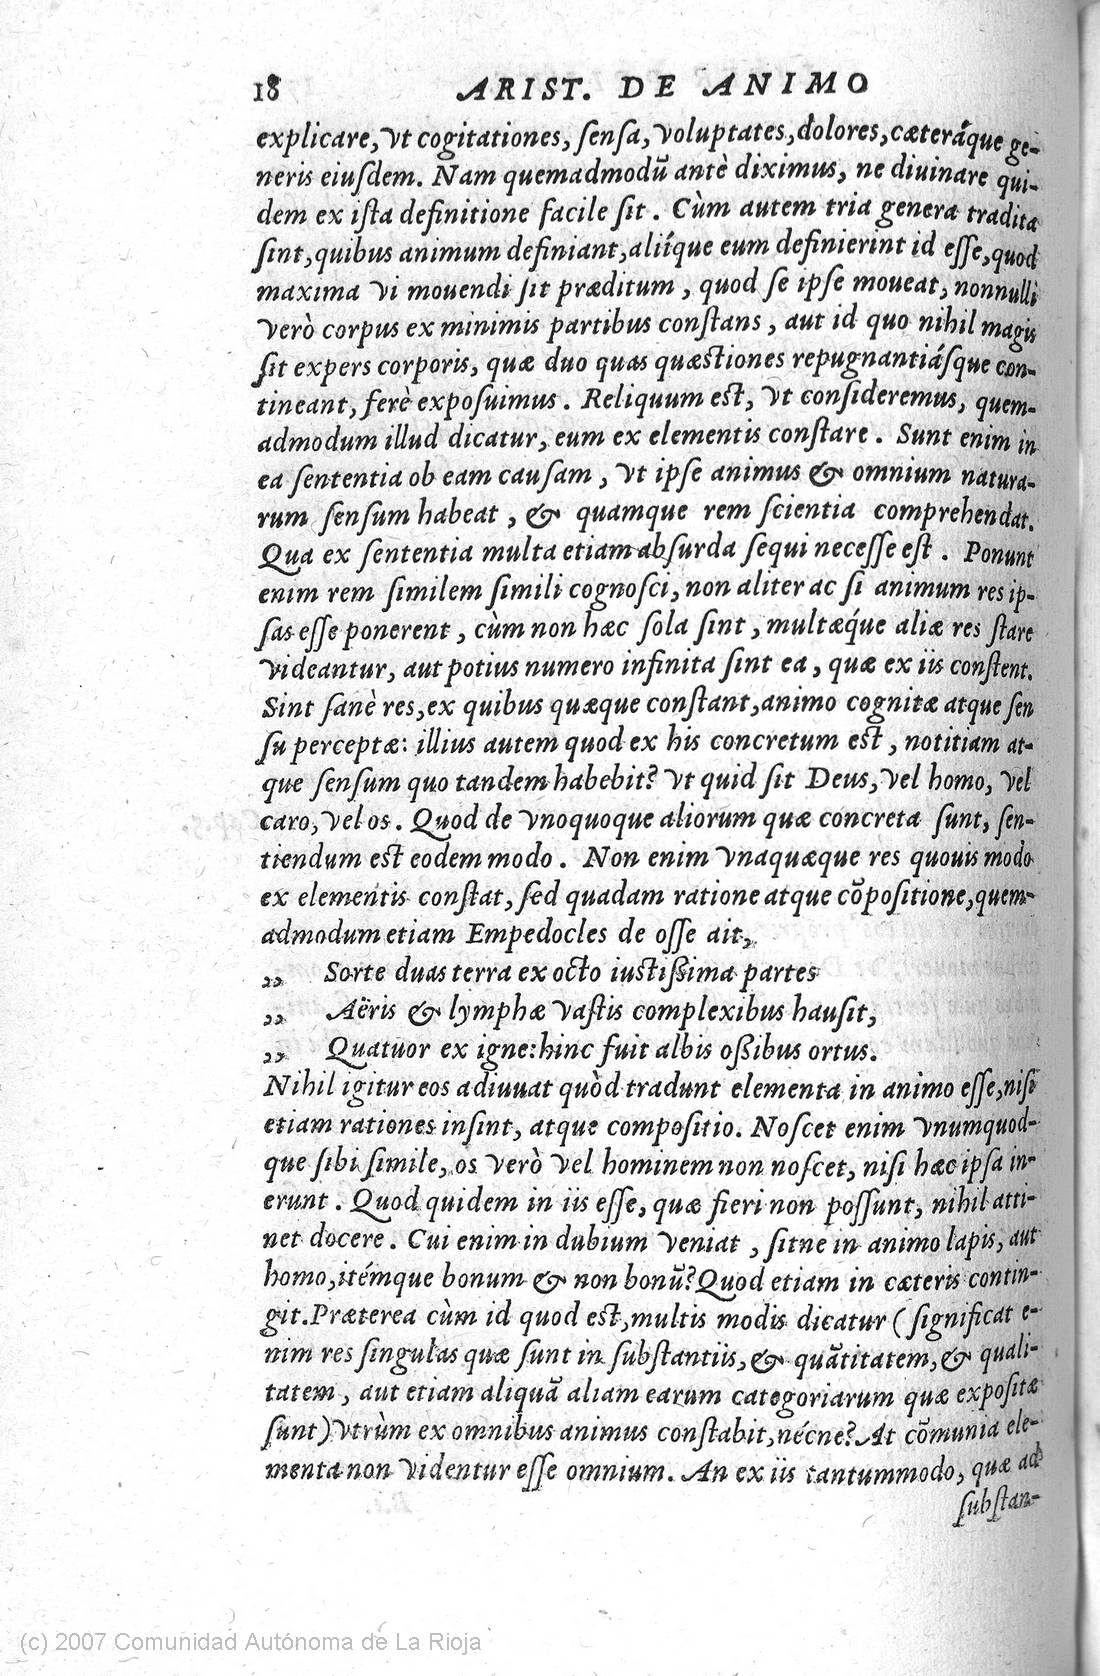 18 ARIST. DE ANIMO
explicare, vt cogitationes, ſenſa, voluptates, dolores, cæteráque ge-
neris eiuſdem. Nam quemadmodũ antè diximus, ne diuinare qui-
dem ex iſta definitione facile ſit. Cùm autem tria genera tradita
ſint, quibus animum definiant, aliíque eum definierint id eſſe, quod
maxima vi mouendi ſit præditum, quod ſe ipſe moueat, nonnulli
verò corpus ex minimis partibus conſtans, aut id quo nihil magis
ſit expers corporis, quæ duo quas quæstiones repugnantiáſque con-
tineant, ferè expoſuimus. Reliquum est, vt conſideremus, quem-
admodum illud dicatur, eum ex elementis conſtare. Sunt enim in
ea ſententia ob eam cauſam, vt ipſe animus & omnium natura-
rum ſenſum habeat, & quamque rem ſcientia comprehendat.
Qua ex ſententia multa etiam abſurda ſequi neceſſe eſt. Ponunt
enim rem ſimilem ſimili cognoſci, non aliter ac ſi animum res ip-
ſas eſſe ponerent, cùm non hæc ſola ſint, multæq́ue aliæ res ſtare
videantur, aut potius numero infinita ſint ea, quæ ex iis conſtent.
Sint ſanè res, ex quibus quæque conſtant, animo cognitæ atque ſen
ſu perceptæ: illius autem quod ex his concretum est, notitiam at-
que ſenſum quo tandem habebit? vt quid ſit Deus, vel homo, vel
caro, vel os. Quod de vnoquoque aliorum quæ concreta ſunt, ſen-
tiendum est eodem modo. Non enim vnaquæque res quouis modo
ex elementis conſtat, ſed quadam ratione atque cõpoſitione, quem-
admodum etiam Empedocles de oſſe ait,
,, Sorte duas terra ex octo iuſtiſsima partes
,, Aëris & lymphæ vaſtis complexibus hauſit,
,, Quatuor ex igne: hinc fuit albis oſsibus ortus.
Nihil igitur eos adiuuat quòd tradunt elementa in animo eſſe, niſi
etiam rationes inſint, atque compoſitio. Noſcet enim vnumquod-
que ſibi ſimile, os verò vel hominem non noſcet, niſi hæc ipſa in-
erunt. Quod quidem in iis eſſe, quæ fieri non poſſunt, nihil atti-
net docere. Cui enim in dubium veniat, ſitne in animo lapis, aut
homo, itémque bonum & non bonũ? Quod etiam in cæteris contin-
git. Præterea cùm id quod est, multis modis dicatur (ſignificat e-
nim res ſingulas quæ ſunt in ſubſtantiis, & quãtitatem, & quali-
tatem, aut etiam aliquã aliam earum categoriarum quæ expoſitæ
ſunt) vtrùm ex omnibus animus conſtabit, nécne? At cõmunia ele-
menta non videntur eſſe omnium. An ex iis tantummodo, quæ ad
ſubſtan-
(c) 2007 Comunidad Autónoma de La Rioja